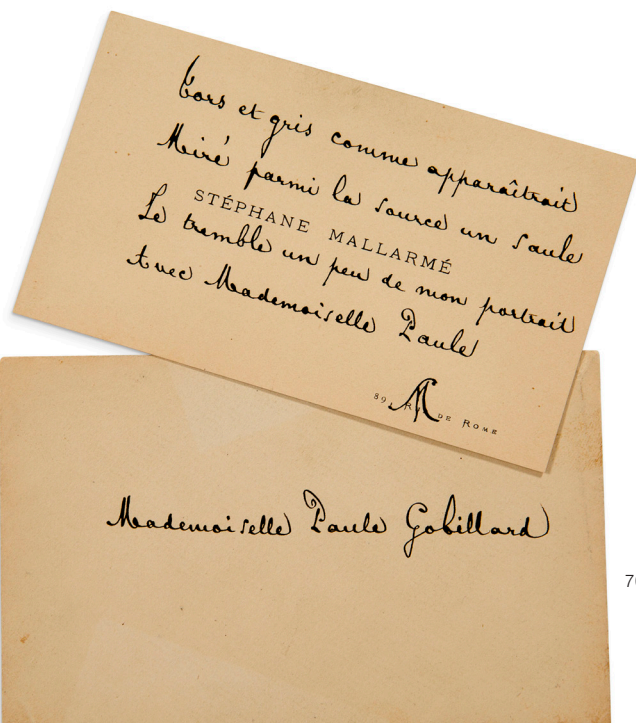 Tors et gris comme apparaîtrait
Miré parmi la source un saule
STÉPHANE MALLARMÉ
Je tremble un peu de mon portrait
Avec Mademoiselle Paule
M
89, R DE ROME
Mademoiselle Paule Gobillard